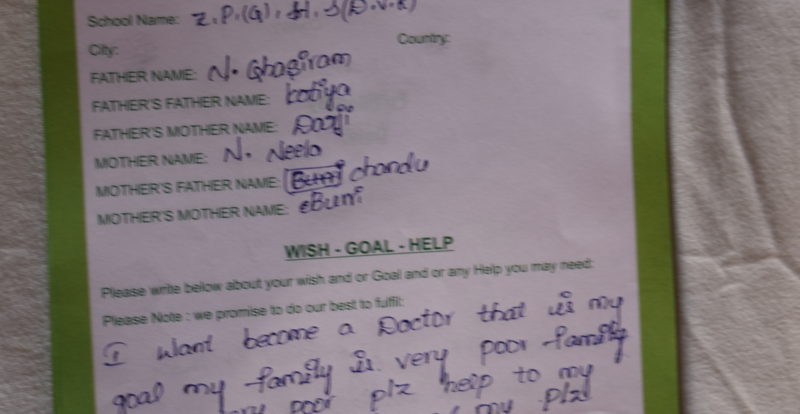 School Name: Z.P.(G).H.S(D.V.K)
City: Country:
FATHER NAME: N. Ghasiram
FATHER'S FATHER NAME: botiya
FATHER'S MOTHER NAME:
MOTHER NAME: N. Neela
MOTHER'S FATHER NAME: chandu
MOTHER'S MOTHER NAME: Buni
WISH - GOAL - HELP
Please write below about your wish and or Goal and or any Help you may need:
Please Note : we promise to do our best to fulfil:
I want become a Doctor that is my
goal my family is very poor family
very poor plz help to my
my plz